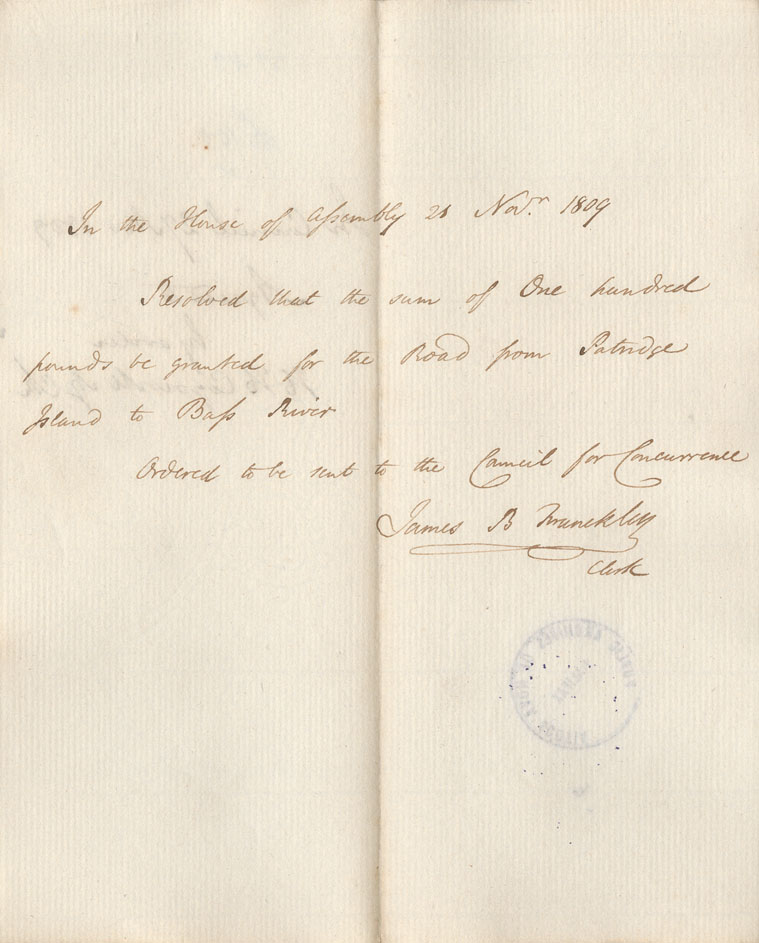 In the House of Assembly 28 Nov.r 1809
Resolved that the sum of One hundred
pounds be granted for the Road from Patridge
Island to Bass River
Ordered to be sent to the Council for Concurrence
James B Franckling
Clerk
PUBLIC ARCHIVES OF NOVA SCOTIA